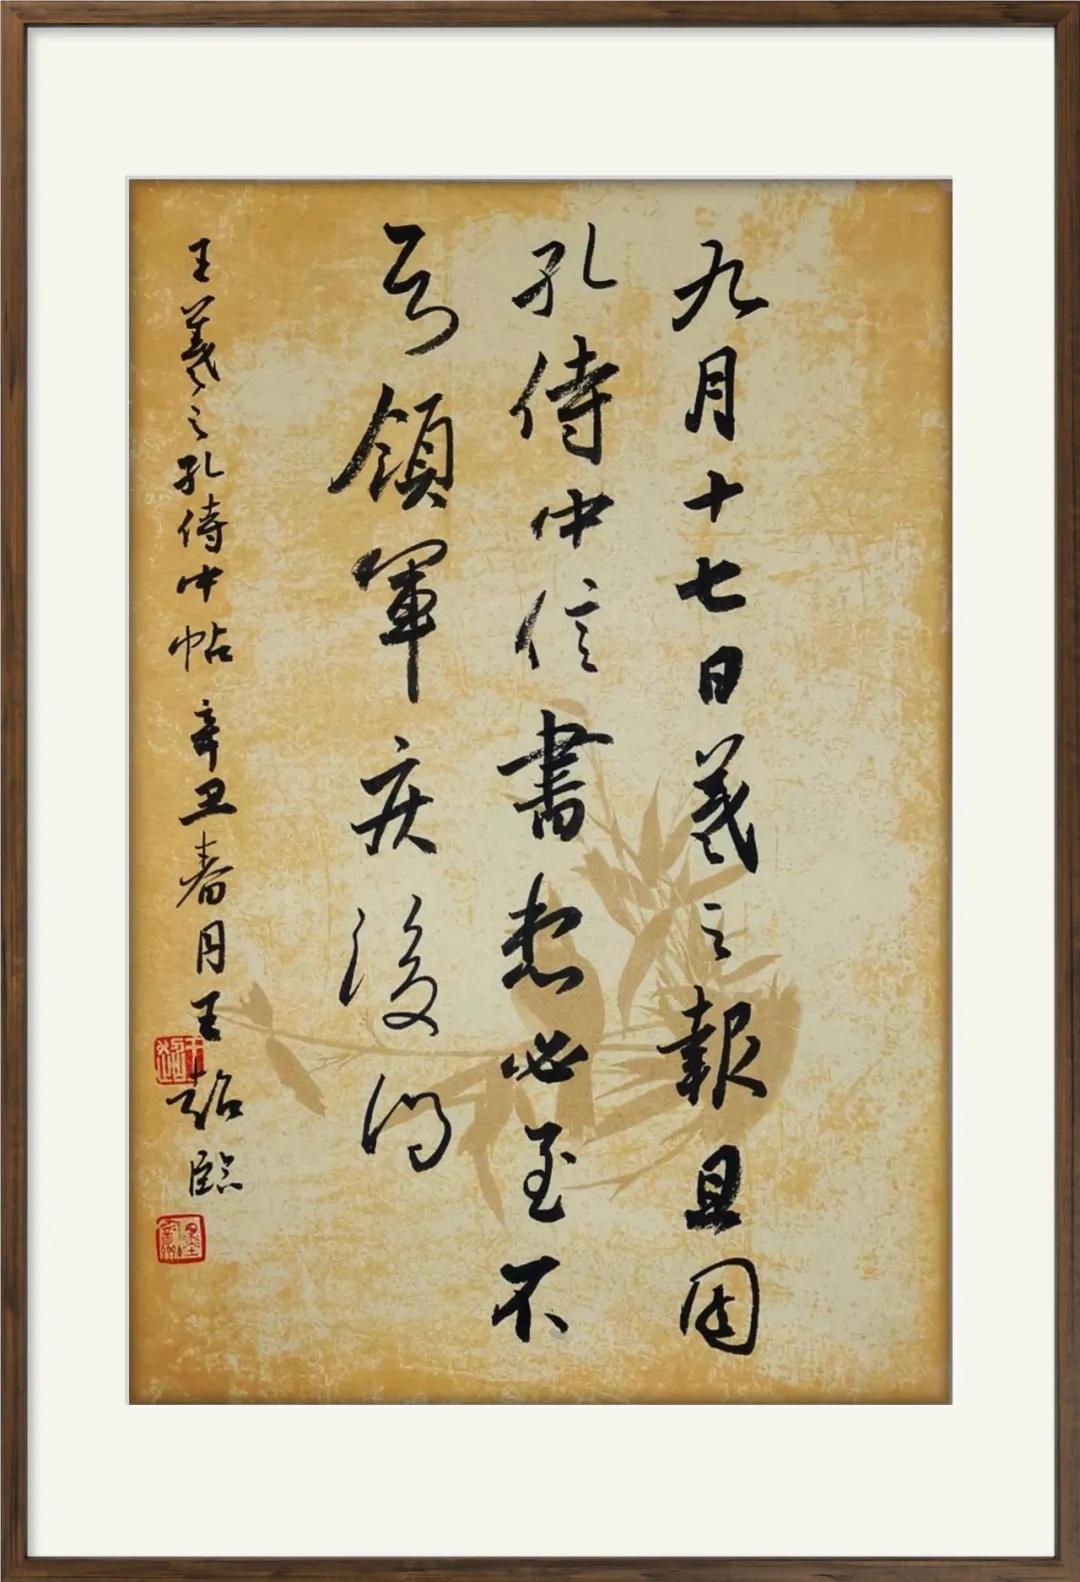 九月十七日羲之報且因
孔侍中信書想必至不
知領軍疾後問
王羲之孔侍中帖 辛丑春月王超臨